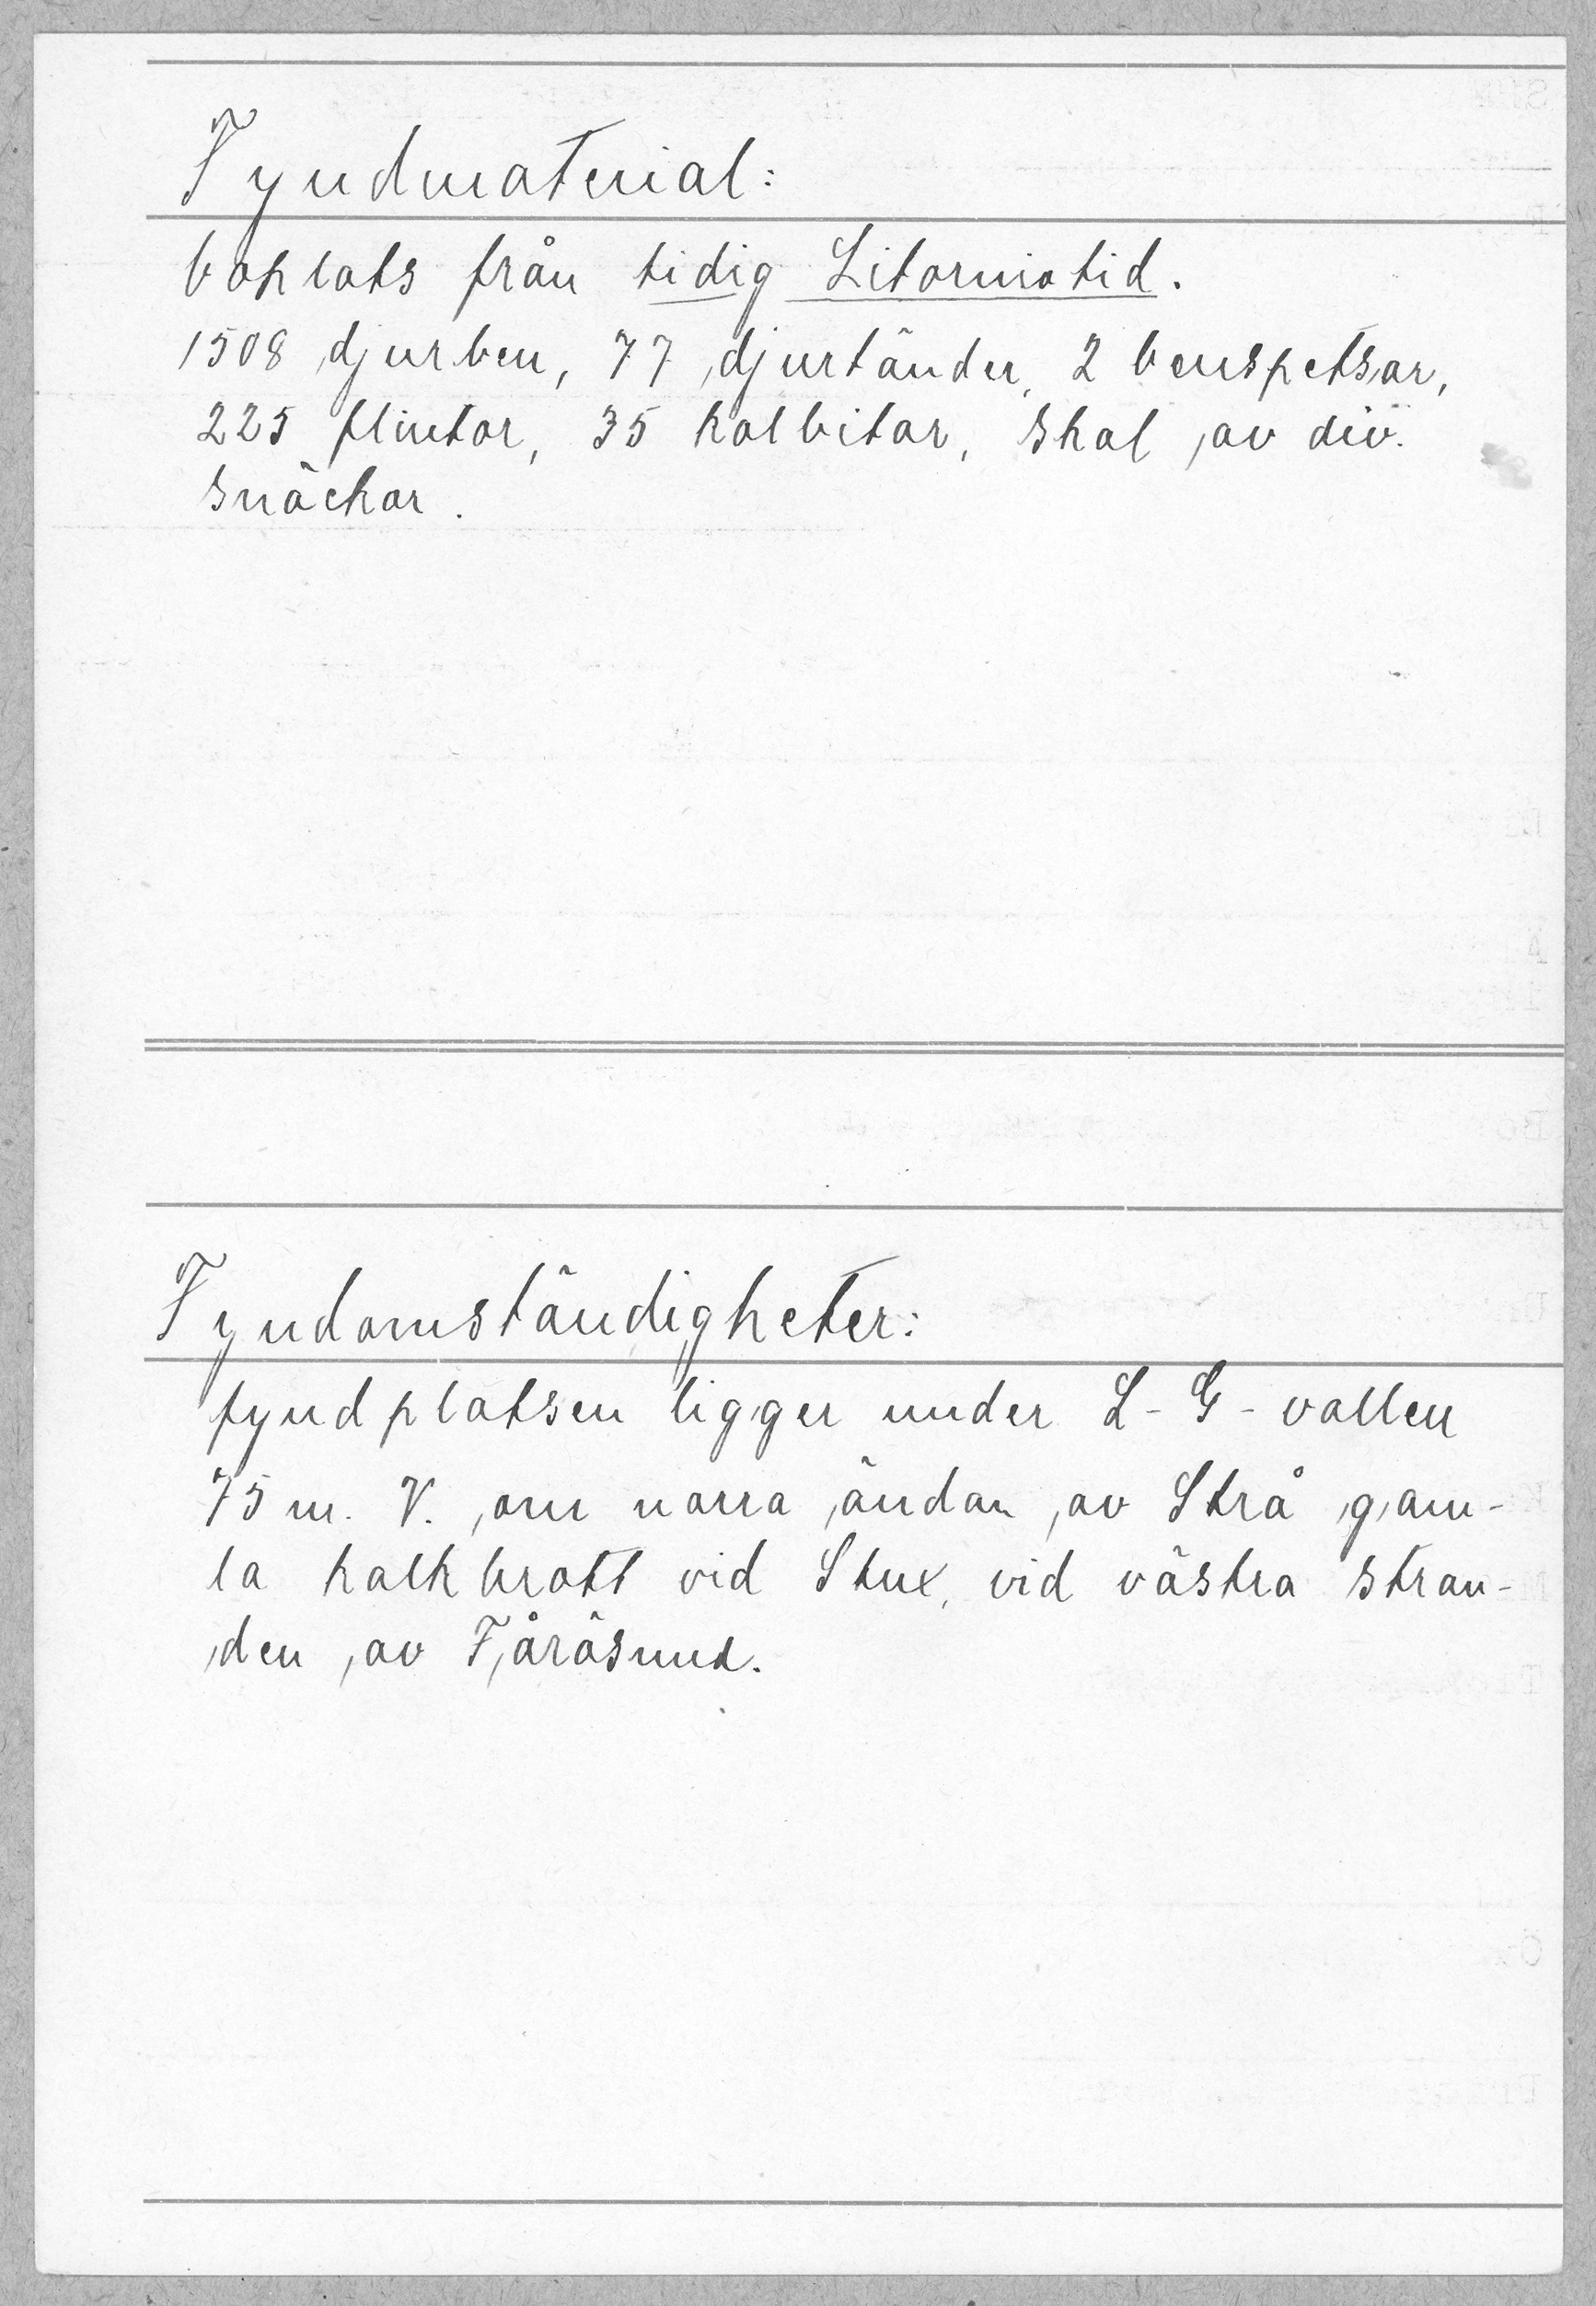 Fyndmaterial:
boplats från tidig Litorinatid.
1508 djurben, 77 djurtänder, 2 benspetsar,
225 flintor, 35 kolbitar, skal av div.
snäckor.
Fyndomständigheter:
fyndplatsen ligger under L-G-vallen
75 m. V. om norra ändan av Strå gam-
la kalkbrott vid Stux, vid västra stran-
den av Fårösund.